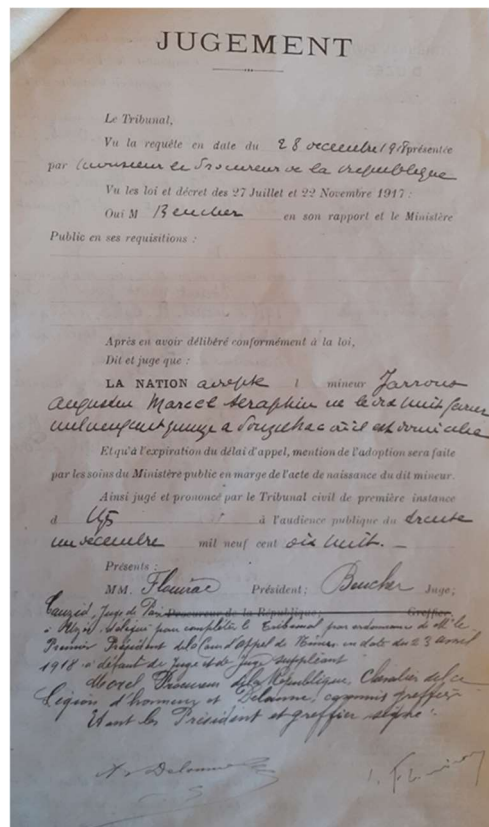 JUGEMENT
Le Tribunal,
Vu la requête en date du 28 decembre 1918 présentée
par Monsieur le Procureur de la republique
Vu les loi et décret des 27 Juillet et 22 Novembre 1917 :
Ouï M Beucher en son rapport et le Ministère
Public en ses requisitions :
Après en avoir délibéré conformément à la loi,
Dit et juge que :
LA NATION adopte l mineur
Augustin Marcel Séraphin né le dix huit
mil neuf cent quinze a où il est domicilié
Et qu'à l'expiration du délai d'appel, mention de l'adoption sera faite
par les soins du Ministère public en marge de l'acte de naissance du dit mineur.
Ainsi jugé et prononcé par le Tribunal civil de première instance
d Uzès à l'audience publique du trente
un decembre mil neuf cent dix huit. —
Présents :
MM. Fleurac Président; Beucher Juge;
Juge de Paix Procureur de la République; Greffier,
à Uzès, délégué pour compléter le Tribunal par ordonnance de M. le
Premier Président de la Cour d'appel de Nîmes en date du 23 avril
1918 à défaut de Juge et de Juge suppléant
Morel Procureur de la République, Chevalier de la
Légion d'honneur et Delaune, commis greffier
Et ont les Président et greffier signé :
Delaune